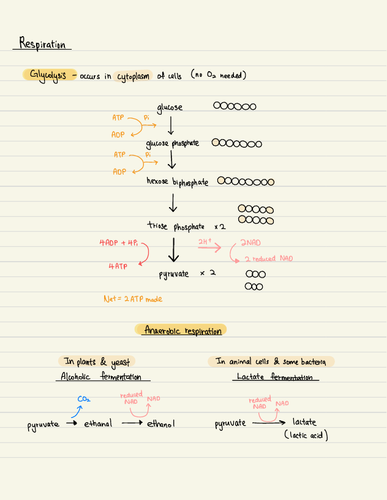 Respiration
Glycolysis - occurs in cytoplasm of cells (no O2 needed)
glucose
ATP Pi
ADP
glucose phosphate
ATP Pi
ADP
hexose biphosphate
triose phosphate x 2
4ADP + 4Pi 2H+ 2NAD
4ATP 2 reduced NAD
pyruvate x 2
Net = 2 ATP made
Anaerobic respiration
In plants & yeast In animal cells & some bacteria
Alcoholic fermentation Lactate fermentation
CO2 reduced NAD NAD reduced NAD NAD
pyruvate → ethanal → ethanol pyruvate → lactate
(lactic acid)